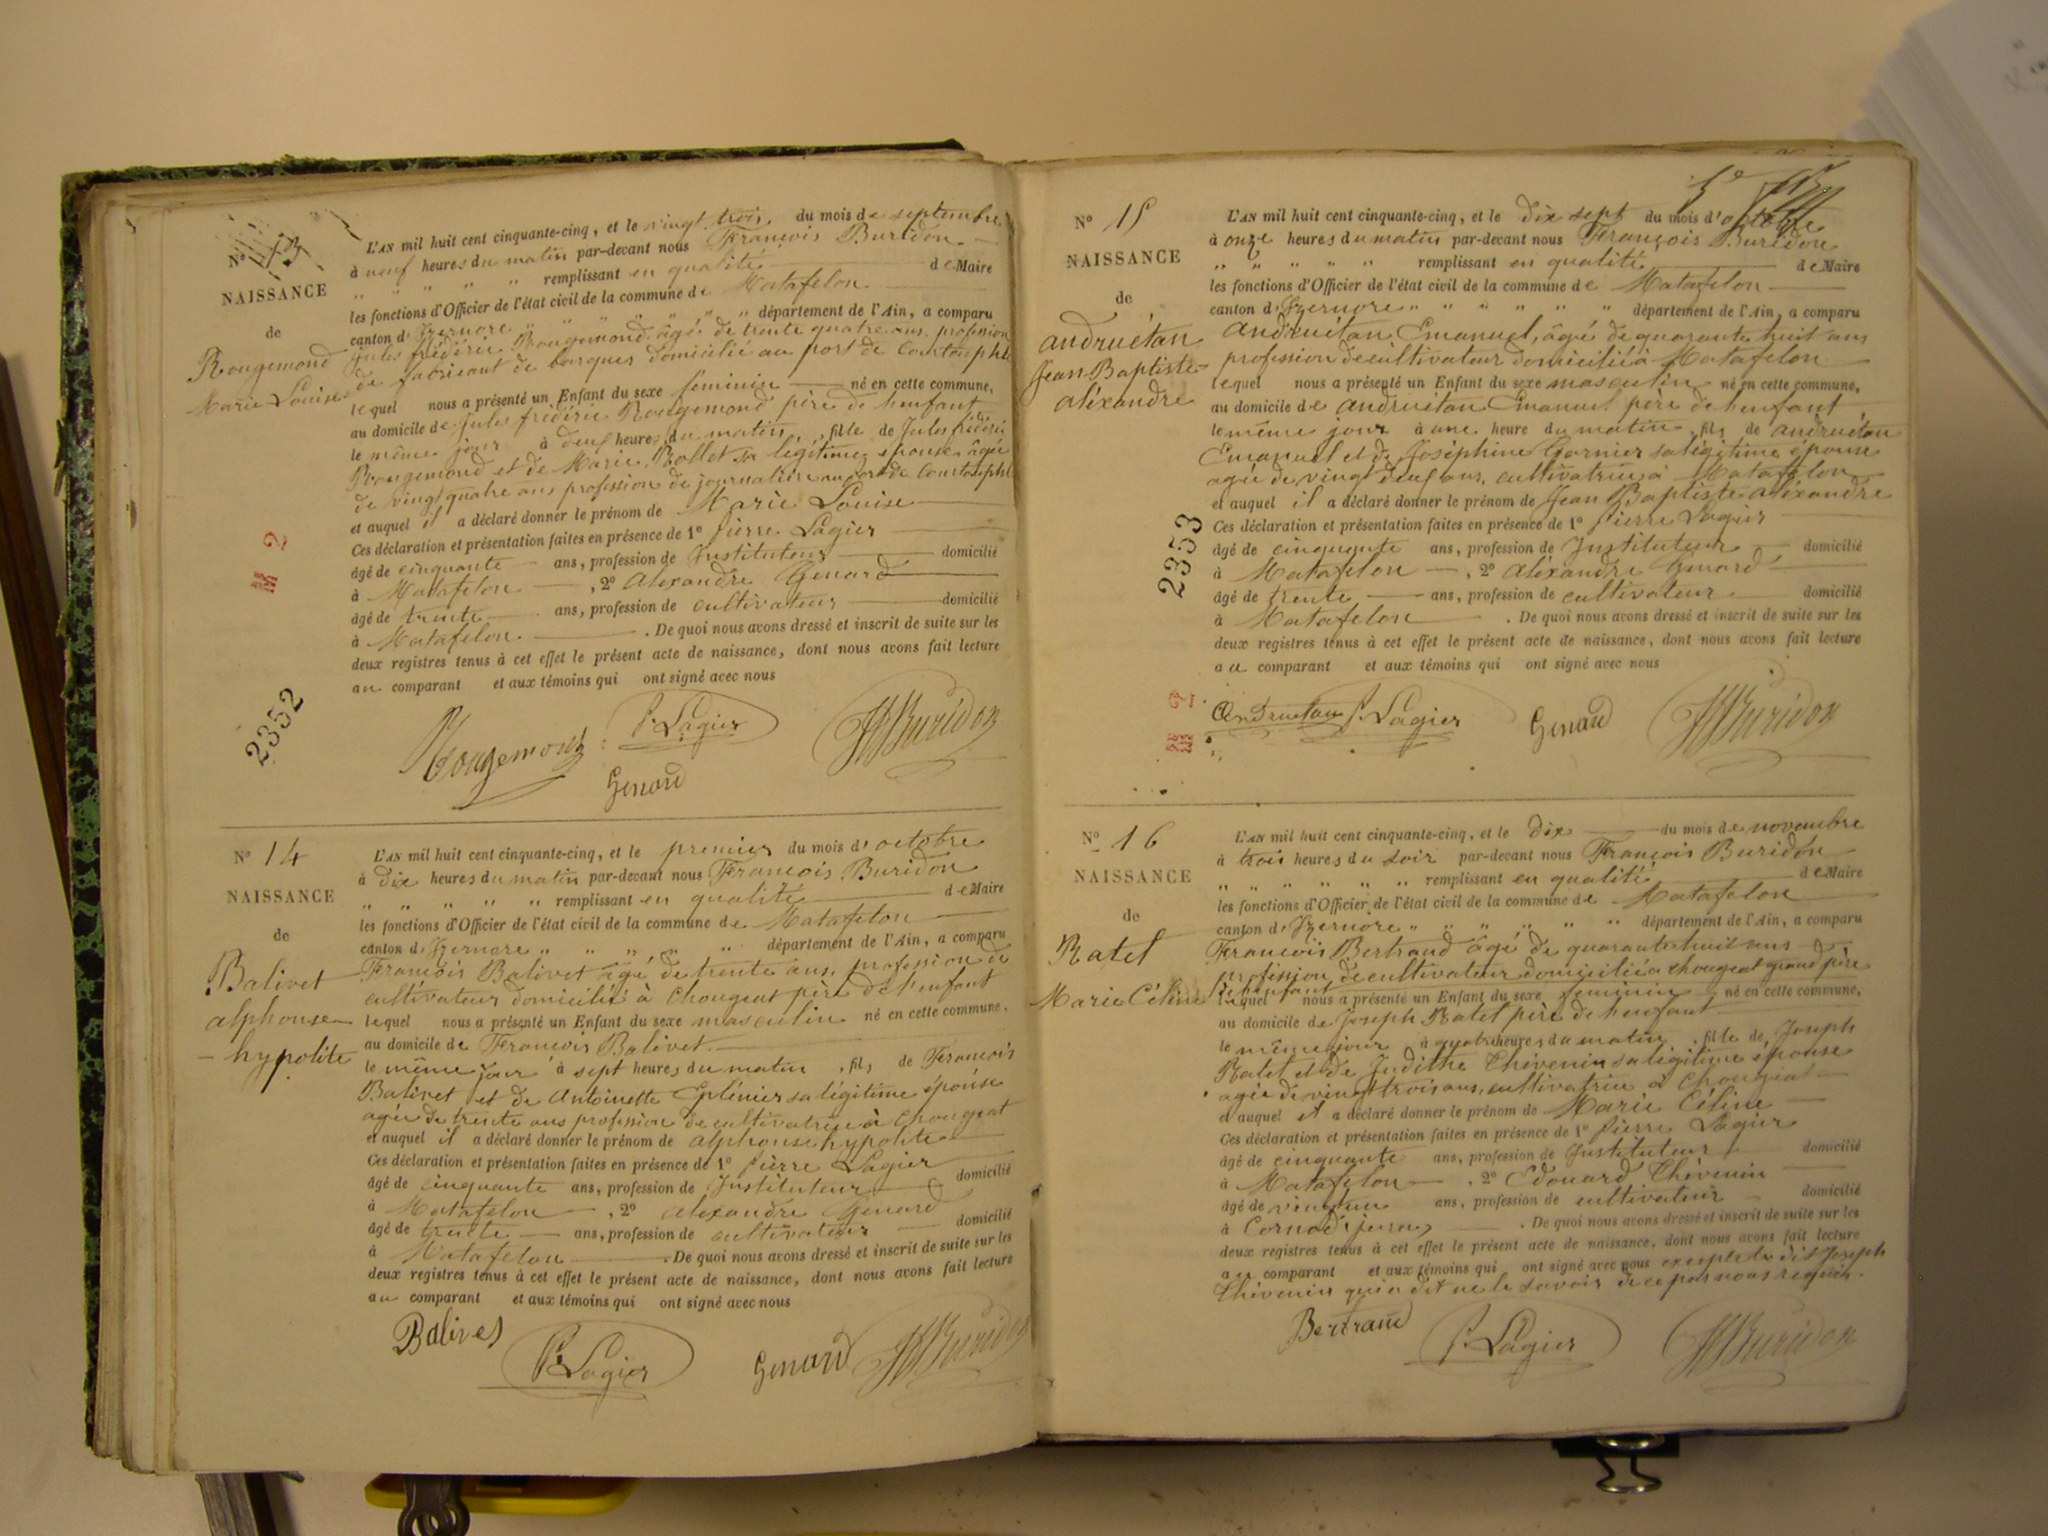 N° 13
NAISSANCE
de
Rougemond
Marie Louise
L'AN mil huit cent cinquante-cinq, et le vingt trois, du mois de septembre
à neuf heures du matin par-devant nous François Buridon
" " " " " remplissant en qualité de Maire
les fonctions d'Officier de l'état civil de la commune de Matafelon
canton d'Izernore " " " " " " département de l'Ain, a comparu
Jules frédéric Rougemond âgé de trente quatre ans, profession
de fabricant de barques domicilié au port de
lequel nous a présenté un Enfant du sexe féminin né en cette commune,
au domicile de Jules frédéric Rougemond père de l'enfant
le même jour à deux heures du matin, fille de Jules frédéric
Rougemond et de Marie Bollet sa légitime épouse âgée
de vingt quatre ans profession de journalière au port de
et auquel il a déclaré donner le prénom de Marie Louise
Ces déclaration et présentation faites en présence de 1° pierre Lagier
âgé de cinquante ans, profession de Instituteur domicilié
à Matafelon , 2° alexandre Genard
âgé de trente ans, profession de cultivateur domicilié
à Matafelon . De quoi nous avons dressé et inscrit de suite sur les
deux registres tenus à cet effet le présent acte de naissance, dont nous avons fait lecture
au comparant et aux témoins qui ont signé avec nous
2352
Rougemond P. Lagier Buridon
Genard
N° 14
NAISSANCE
de
Balivet
alphonse
hypolite
L'AN mil huit cent cinquante-cinq, et le premier du mois d'octobre
à dix heures du matin par-devant nous François Buridon
" " " " " remplissant en qualité de Maire
les fonctions d'Officier de l'état civil de la commune de Matafelon
canton d'Izernore " " " " " département de l'Ain, a comparu
François Balivet âgé de trente ans, profession de
cultivateur domicilié à Chougeat père de l'enfant
lequel nous a présenté un Enfant du sexe masculin né en cette commune,
au domicile de François Balivet
le même jour à sept heures du matin, fils de François
Balivet et de Antoinette sa légitime épouse
agée de trente ans profession de cultivatrice à Chougeat
et auquel il a déclaré donner le prénom de alphonse hypolite
Ces déclaration et présentation faites en présence de 1° pierre Lagier
âgé de cinquante ans, profession de Instituteur domicilié
à Matafelon , 2° alexandre Genard
âgé de trente ans, profession de cultivateur domicilié
à Matafelon . De quoi nous avons dressé et inscrit de suite sur les
deux registres tenus à cet effet le présent acte de naissance, dont nous avons fait lecture
au comparant et aux témoins qui ont signé avec nous
Balivet P. Lagier Genard Buridon
N° 15
NAISSANCE
de
andruétan
Jean Baptiste
aléxandre
L'AN mil huit cent cinquante-cinq, et le dix sept du mois d'octobre
à onze heures du matin par-devant nous François Buridon
" " " " " remplissant en qualité de Maire
les fonctions d'Officier de l'état civil de la commune de Matafelon
canton d'Izernore " " " " " " département de l'Ain, a comparu
andruétan Emanuel, âgé de quarante huit ans
profession de cultivateur domicilié à Matafelon
lequel nous a présenté un Enfant du sexe masculin né en cette commune,
au domicile de andruétan Emanuel père de l'enfant
le même jour à une heure du matin, fils de andruétan
Emanuel et de Joséphine Garnier sa légitime épouse
agée de vingt deux ans, cultivatrice à Matafelon
et auquel il a déclaré donner le prénom de Jean Baptiste aléxandre
Ces déclaration et présentation faites en présence de 1° pierre Lagier
âgé de cinquante ans, profession de Instituteur domicilié
à Matafelon , 2° aléxandre Genard
âgé de trente ans, profession de cultivateur domicilié
à Matafelon . De quoi nous avons dressé et inscrit de suite sur les
deux registres tenus à cet effet le présent acte de naissance, dont nous avons fait lecture
au comparant et aux témoins qui ont signé avec nous
2353
Andruetan P. Lagier Genard Buridon
N° 16
NAISSANCE
de
Ratel
Marie Céline
L'AN mil huit cent cinquante-cinq, et le dix du mois de novembre
à trois heures du soir par-devant nous François Buridon
" " " " " " remplissant en qualité de Maire
les fonctions d'Officier de l'état civil de la commune de Matafelon
canton d'Izernore " " " " " " département de l'Ain, a comparu
François Bertrand âgé de quarante huit ans
profession de cultivateur domicilié à chougeat grand père
de l'enfant
lequel nous a présenté un Enfant du sexe féminin né en cette commune,
au domicile de Joseph Ratel père de l'enfant
le même jour à quatre heures du matin, fille de Joseph
Ratel et de Judithe Chévenin sa légitime épouse
agée de vingt trois ans, cultivatrice à Chougeat
et auquel il a déclaré donner le prénom de Marie Céline
Ces déclaration et présentation faites en présence de 1° pierre Lagier
âgé de cinquante ans, profession de Instituteur domicilié
à Matafelon , 2° Edouard Chévenin
âgé de vingt un ans, profession de cultivateur domicilié
à . De quoi nous avons dressé et inscrit de suite sur les
deux registres tenus à cet effet le présent acte de naissance, dont nous avons fait lecture
au comparant et aux témoins qui ont signé avec nous excepté le dit Joseph
Chévenin qui a dit ne le savoir de ce par nous requis.
Bertrand P. Lagier Buridon